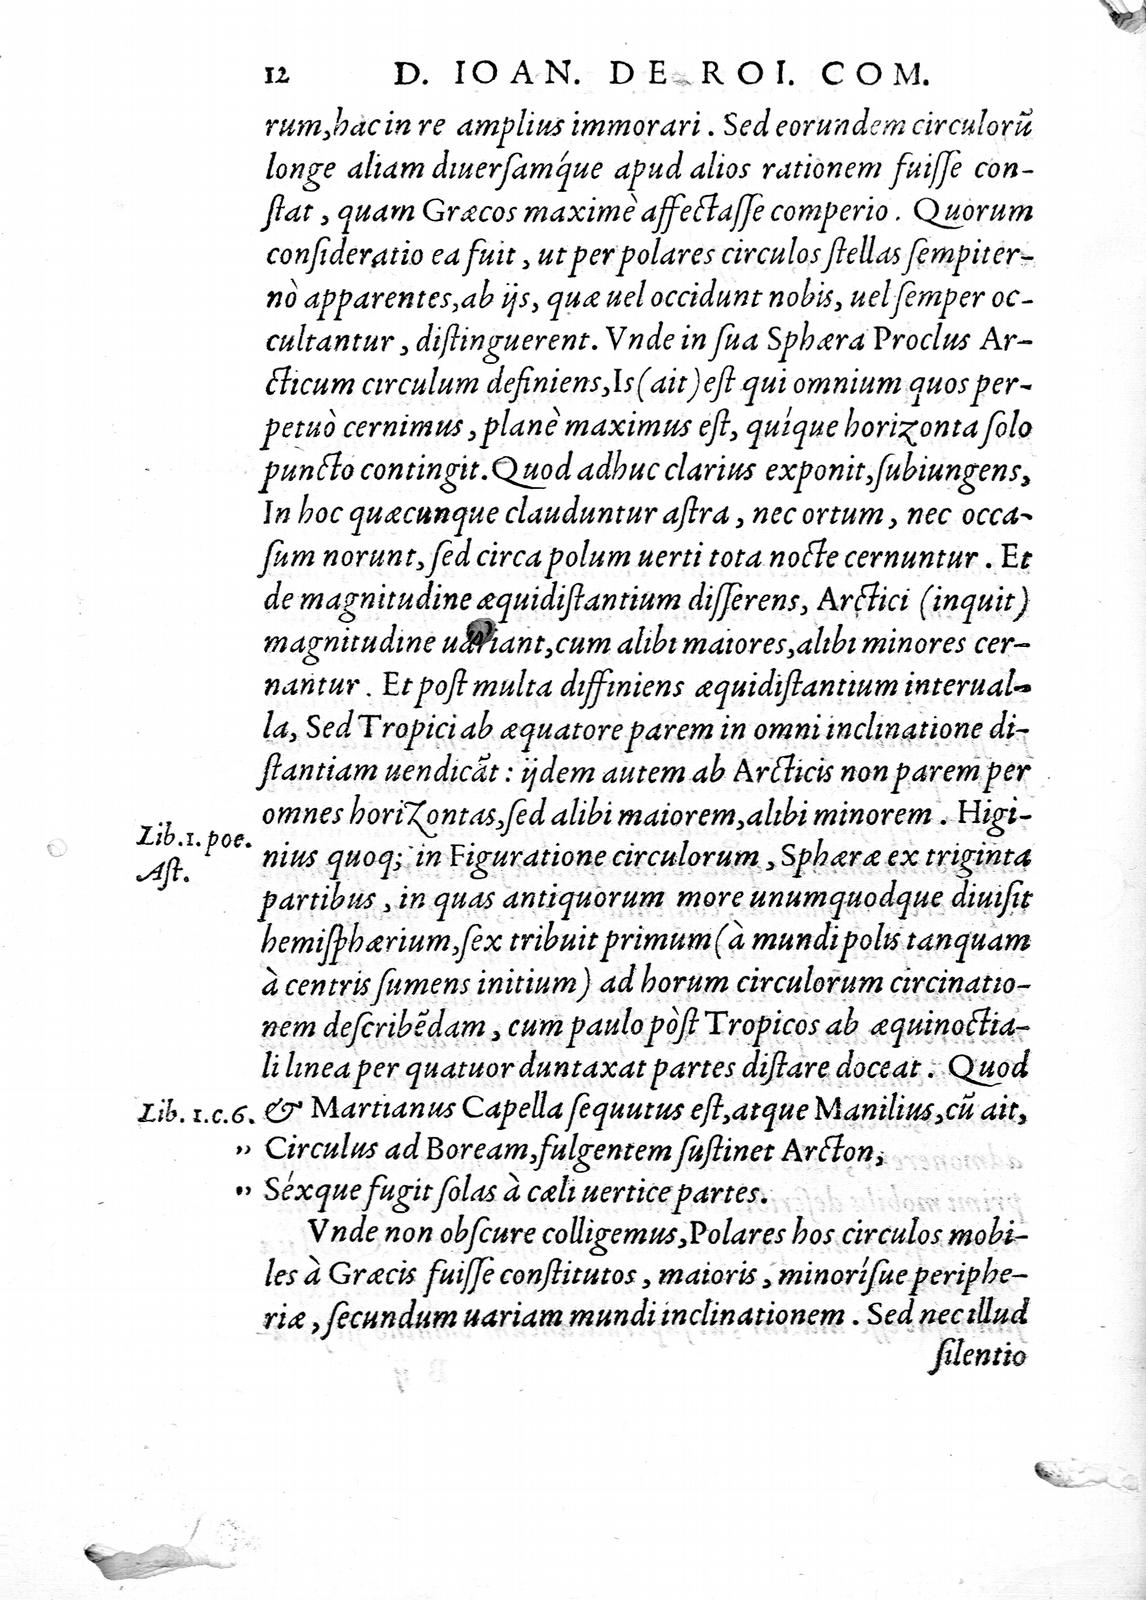 12 D. IOAN. DE ROI. COM.
rum,hac in re amplius immorari. Sed eorundem circulorũ
longe aliam diuersamq́ue apud alios rationem fuisse con-
stat, quam Græcos maximè affectasse comperio. Quorum
consideratio ea fuit, ut per polares circulos stellas sempiter-
nò apparentes,ab ijs, quæ uel occidunt nobis, uel semper oc-
cultantur, distinguerent. Vnde in sua Sphæra Proclus Ar-
cticum circulum definiens,Is(ait)est qui omnium quos per-
petuò cernimus, planè maximus est, quíque horizonta solo
puncto contingit.Quod adhuc clarius exponit,subiungens,
In hoc quæcunque clauduntur astra, nec ortum, nec occa-
sum norunt, sed circa polum uerti tota nocte cernuntur. Et
de magnitudine æquidistantium disserens, Arctici (inquit)
magnitudine uariant,cum alibi maiores,alibi minores cer-
nantur. Et post multa diffiniens æquidistantium interual-
la, Sed Tropici ab æquatore parem in omni inclinatione di-
stantiam uendicãt: ijdem autem ab Arcticis non parem per
omnes horizontas,sed alibi maiorem,alibi minorem. Higi-
Lib.1.poe.
Ast.
nius quoq; in Figuratione circulorum, Sphæræ ex triginta
partibus, in quas antiquorum more unumquodque diuisit
hemisphærium,sex tribuit primum(à mundi polis tanquam
à centris sumens initium) ad horum circulorum circinatio-
nem describẽdam, cum paulo pòst Tropicos ab æquinoctia-
li linea per quatuor duntaxat partes distare doceat. Quod
Lib. 1.c.6. & Martianus Capella sequutus est,atque Manilius,cũ ait,
" Circulus ad Boream,fulgentem sustinet Arcton,
" Séxque fugit solas à cæli uertice partes.
Vnde non obscure colligemus,Polares hos circulos mobi-
les à Græcis fuisse constitutos, maioris, minorísue periphe-
riæ, secundum uariam mundi inclinationem. Sed nec illud
silentio